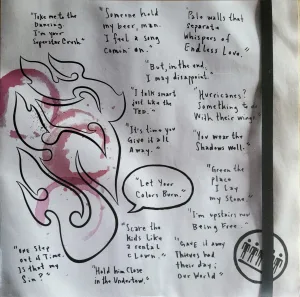 "Take me to the
Dancing
I'm your
Superstar Crush"
"Someone hold
my beer, man.
I feel a song
comin' on."
"Pale walls that
separate
whispers of
Endless Love."
"But, in the end,
I may disappoint."
"I talk smart
just like the
TED."
"Hurricanes?
Something to
With their wings."
"It's time you
Give it all
Away."
"You wear the
Shadows well."
"Green the
place I
lay
my Stone."
"Let Your
Colors Burn."
"I'm upstairs now
Being Free."
"Scare the
kids like
a rental
clown."
"Gave it away
Thieves had
their day;
Our World"
"One Step
out of Time.
Is that my
Sin?"
"Hold him Close
in the Undertow."